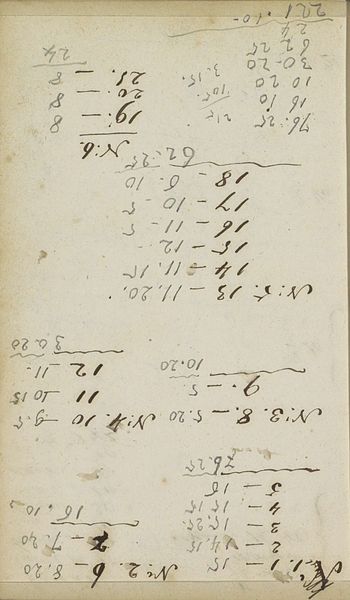 N: 1. 1 — 15
2 — 14.15
3 — 15.25
4 — 15.15
5 — 16
76.25
N: 2. 6 — 8.20
7 — 7.20
16.10
N: 3. 8 — 5.20
9 — 5.
10.20
N: 4. 10 — 9.5
11 10 15
12 — 11 -
30.20
N: 5. 13 — 11.20.
14 — 11.15
15 — 12
16 — 11 - 5
17 — 10 - 5
18 — 6 10
62.25
N: 6.
19 — 8
20 — 8
21. — 8
24
76.25
16 10
10 20
30-20
62 25
24
221.10
105
3.15.